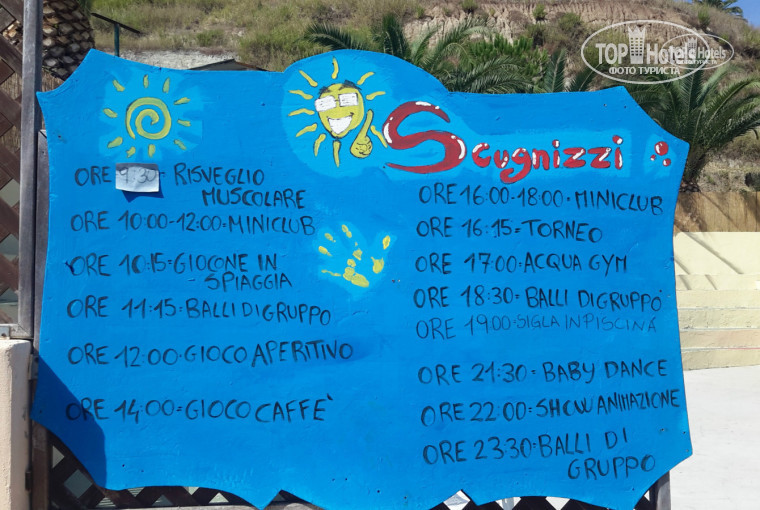 TOPHotels
TopHotels.ru
ФОТО ТУРИСТА
Scugnizzi
ORE 9:30= RISVEGLIO
MUSCOLARE
ORE 10:00-12:00=MINICLUB
ORE 10:15=GIOCONE IN
SPIAGGIA
ORE 11:15=BALLI DI GRUPPO
ORE 12:00=GIOCO APERITIVO
ORE 14:00=GIOCO CAFFE'
ORE 16:00-18:00=MINICLUB
ORE 16:15=TORNEO
ORE 17:00=ACQUA GYM
ORE 18:30=BALLI DI GRUPPO
ORE 19:00=SIGLA IN PISCINA
ORE 21:30=BABY DANCE
ORE 22:00=SHOW ANIMAZIONE
ORE 23:30=BALLI DI
GRUPPO